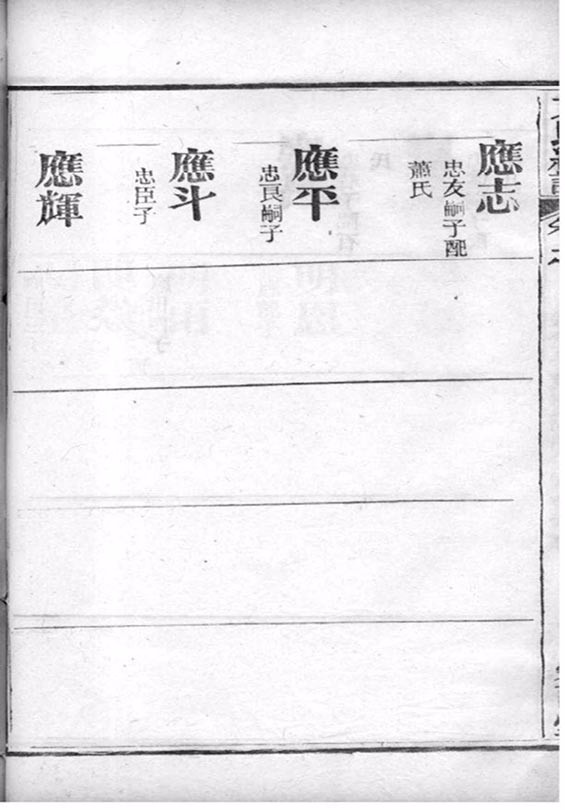 應志
忠友嗣子配
蕭氏
應平
忠良嗣子
應斗
忠臣子
應輝